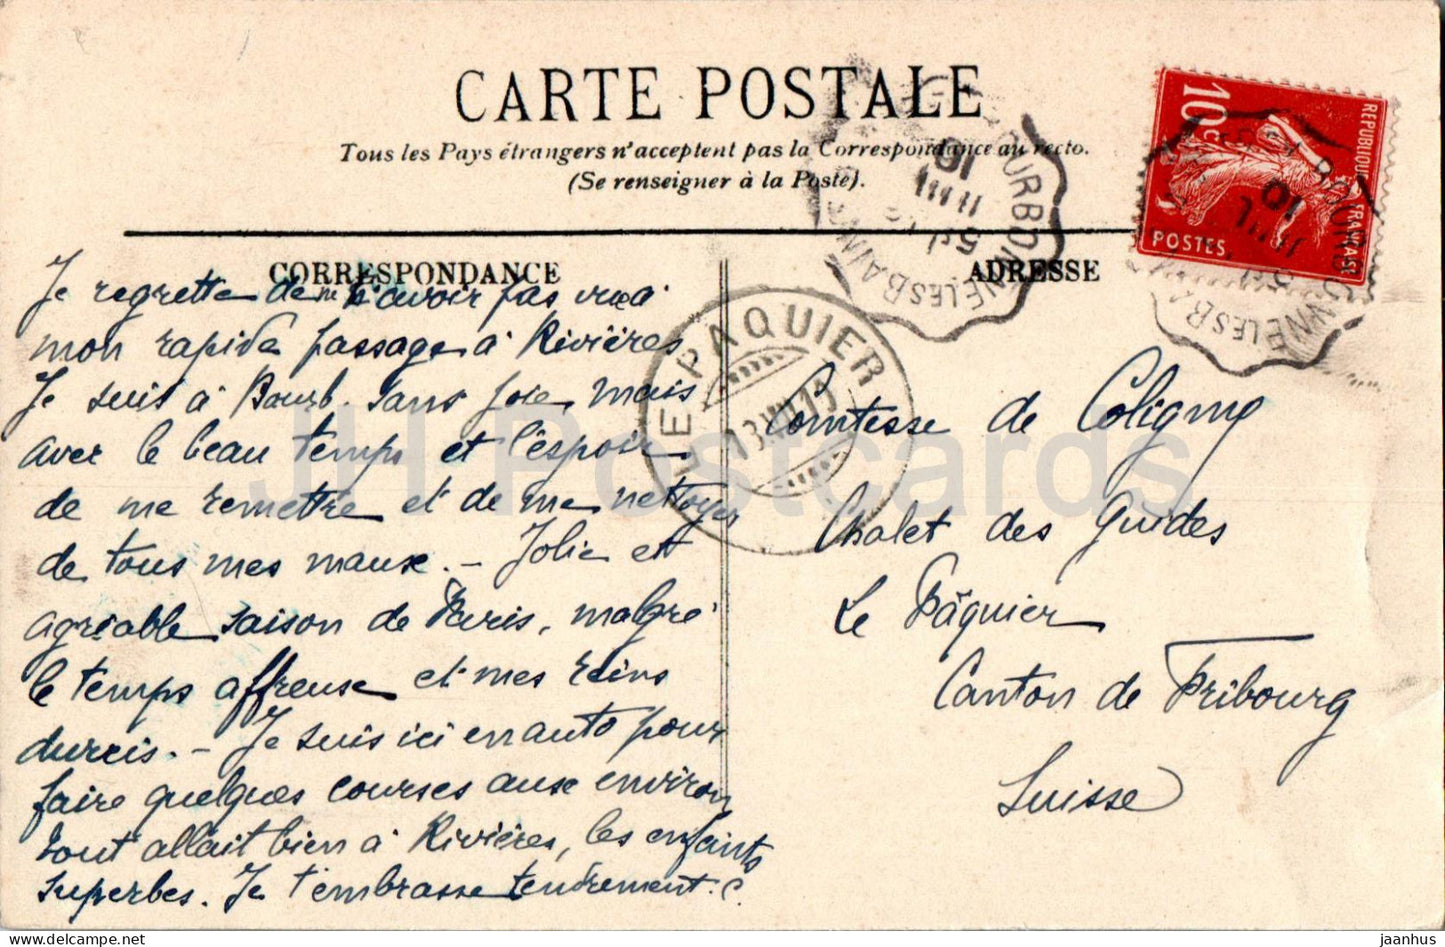 CARTE POSTALE
Tous les Pays étrangers n'acceptent pas la Correspondance au recto.
(Se renseigner à la Poste).
CORRESPONDANCE
ADRESSE
Je regrette de m'avoir pas vu à
mon rapide passage à Rivières
Je suis à Bourb. sans joie, mais
avec le beau temps et l'espoir
de me remettre et de me nettoyer
de tous mes maux. – Jolie et
agréable saison de Paris, malgré
le temps affreux et mes reins
durcis. – Je suis ici en auto pour
faire quelques courses aux environs
tout allait bien à Rivières, les enfants
superbes. Je t'embrasse tendrement. C.
Comtesse de Coligny
Chalet des Guides
Le Pâquier
Canton de Fribourg
Suisse
REPUBLIQUE FRANÇAISE
10 c
POSTES
LE PAQUIER
13 VII 11
BOURBONNE LES B
JH Postcards
jaanhus | delcampe.net